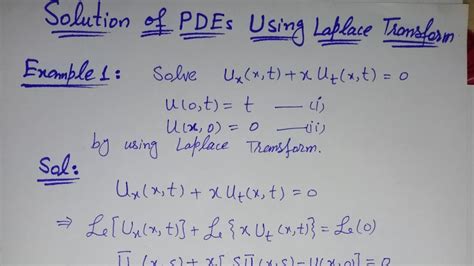 Solution of PDEs Using Laplace Transform
Example 1: Solve Ux(x,t) + x Ut(x,t) = 0
U(0,t) = t — (i)
U(x,0) = 0 — (ii)
by using Laplace Transform.
Sol:
Ux(x,t) + x Ut(x,t) = 0
⇒ ℒ[Ux(x,t)] + ℒ{x Ut(x,t)} = ℒ(0)
Ūx(x,s) + x[sŪ(x,s) - U(x,0)] = 0